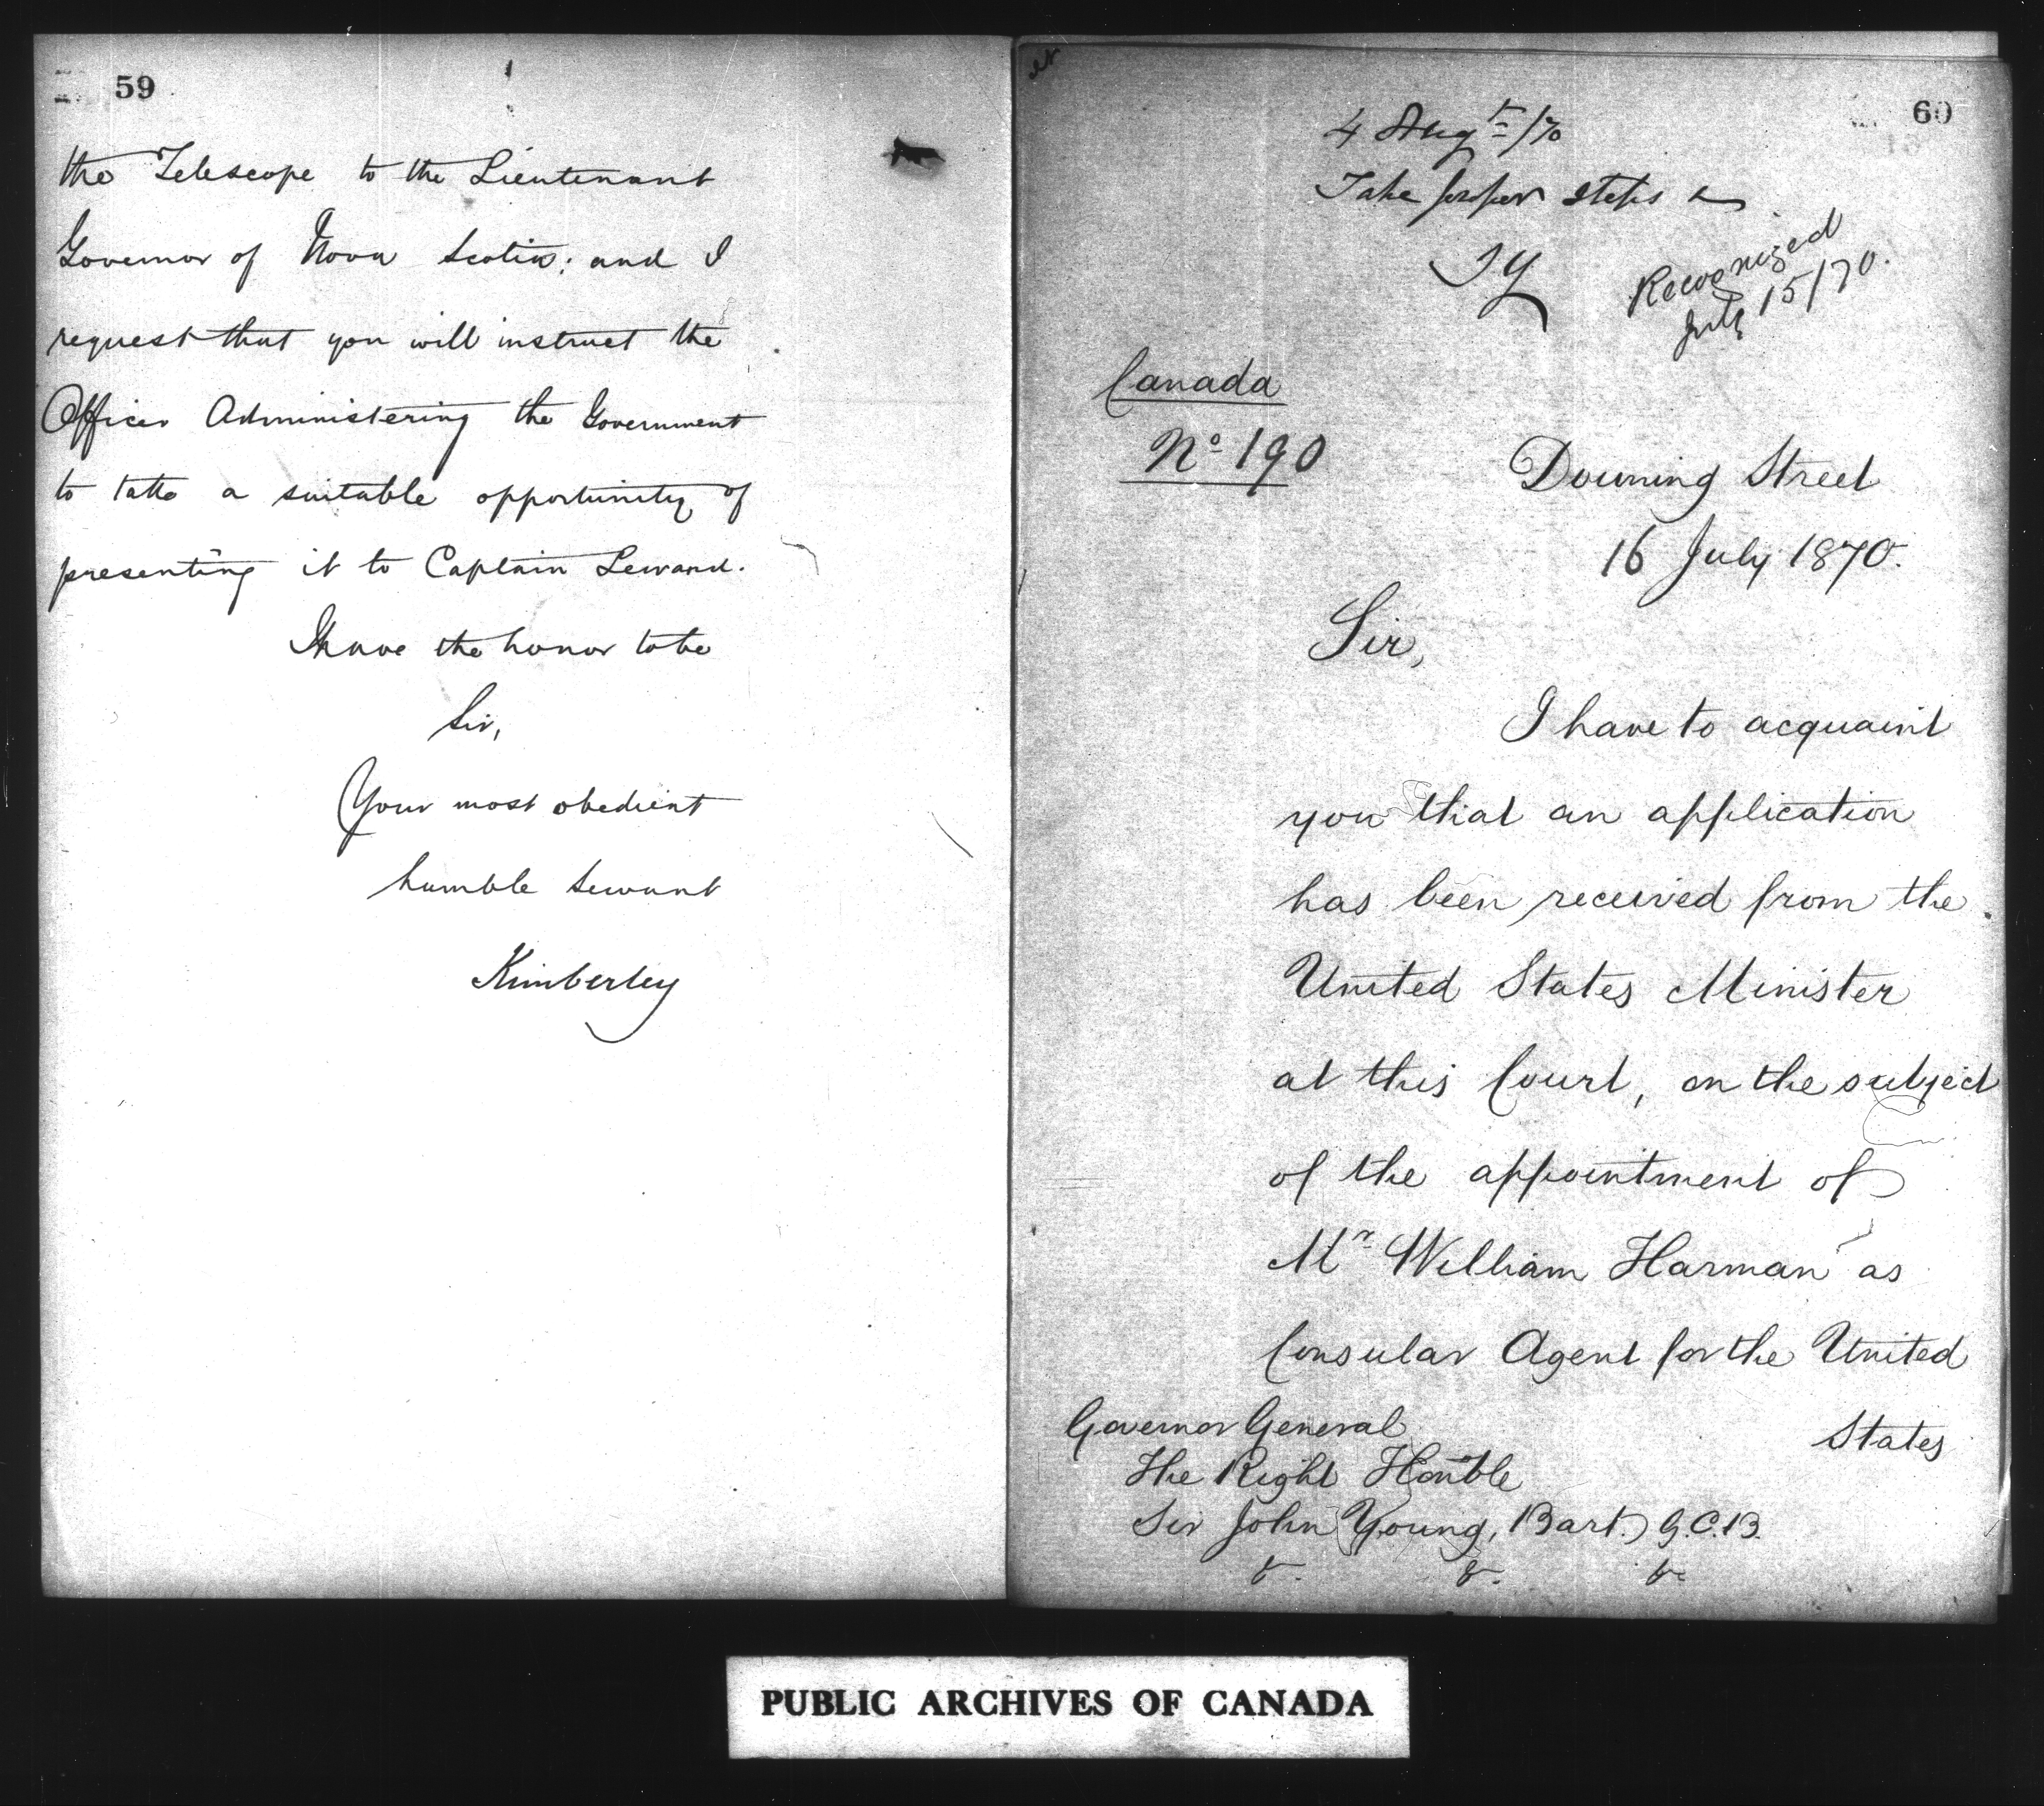 59
the Telescope to the Lieutenant
Governor of Nova Scotia; and I
request that you will instruct the
Officer Administering the Government
to take a suitable opportunity of
presenting it to Captain
I have the honor to be
Sir,
Your most obedient
humble servant
Kimberley
60
4 Augt /70
Take proper steps
JY
Recognized
July 15/70.
Canada
No 190
Downing Street
16 July 1870.
Sir,
I have to acquaint
you that an application
has been received from the
United States Minister
at this Court, on the subject
of the appointment of
Mr William Harman as
Consular Agent for the United
States
Governor General
The Right Honble
Sir John Young, Bart. G.C.B.
&. &. &c
PUBLIC ARCHIVES OF CANADA